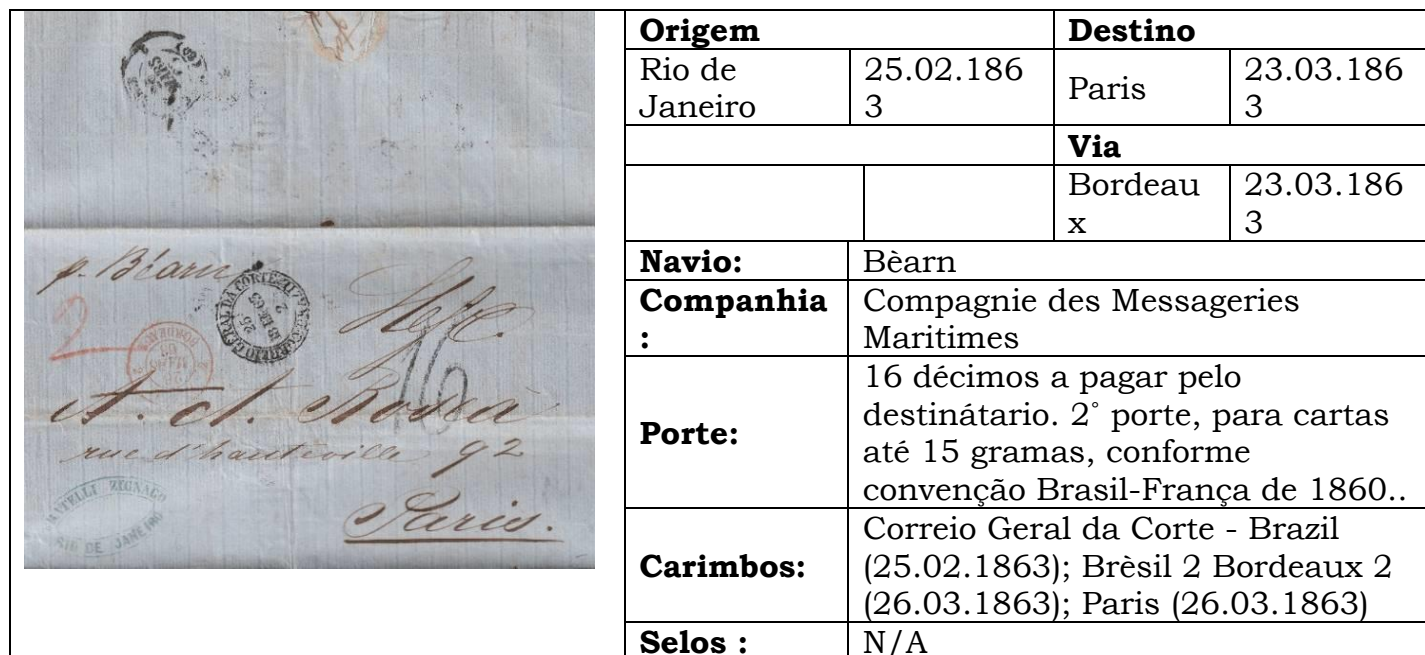 p. Béarn
CORREIO GERAL DA CORTE
25
2
2
16
rue d'hauteville 92
Paris.
RIO DE JANEIRO
Origem Destino
Rio de
Janeiro
25.02.186
3
Paris
23.03.186
3
Via
Bordeau
x
23.03.186
3
Navio: Bèarn
Companhia
:
Compagnie des Messageries
Maritimes
Porte:
16 décimos a pagar pelo
destinátario. 2° porte, para cartas
até 15 gramas, conforme
convenção Brasil-França de 1860..
Carimbos:
Correio Geral da Corte - Brazil
(25.02.1863); Brèsil 2 Bordeaux 2
(26.03.1863); Paris (26.03.1863)
Selos : N/A